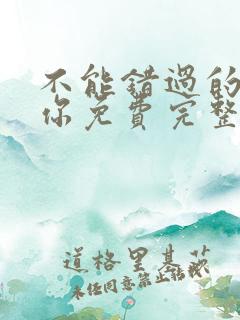 不能错過的
你免費完整
道格里基茨
未经同意禁止转载